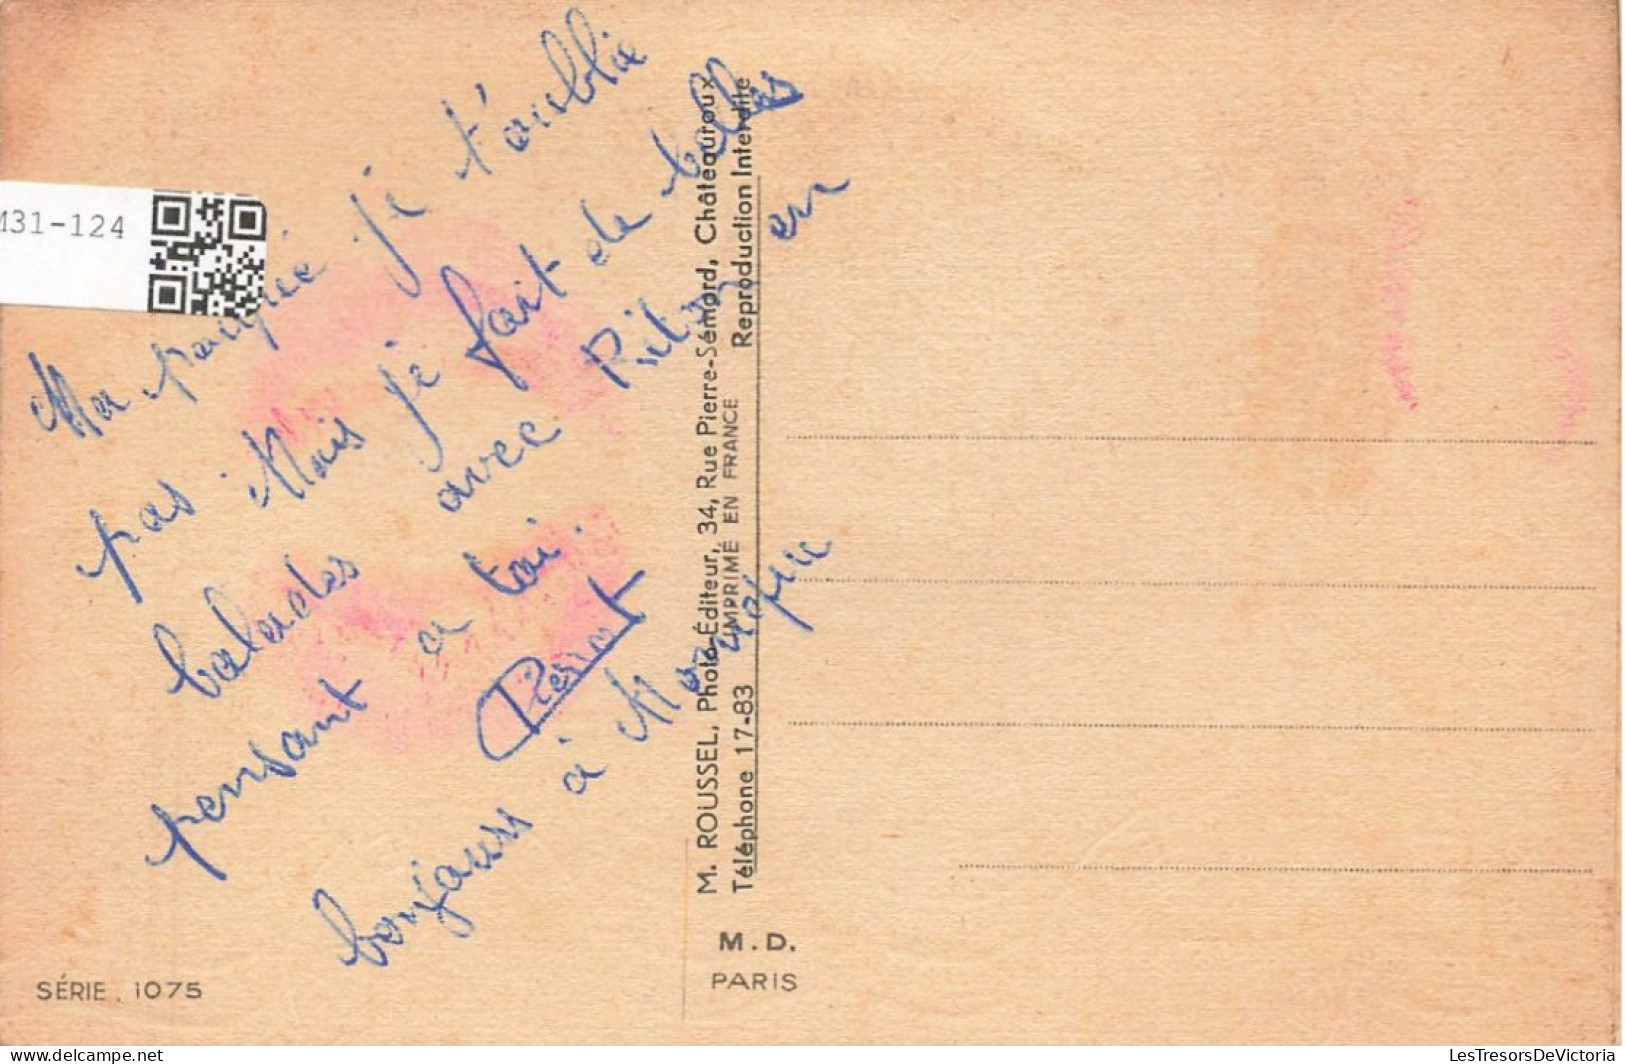 M31-124
Ma je t'oublie
pas Mais je fait de belles
balades avec en
pensant a toi.
bonjours à
M. ROUSSEL, Photo-Éditeur, 34, Rue Pierre-Sémard, Châteauroux
Téléphone 17-83 IMPRIMÉ EN FRANCE Reproduction Interdite
M. D.
PARIS
SÉRIE. 1075
LesTresorsDeVictoria